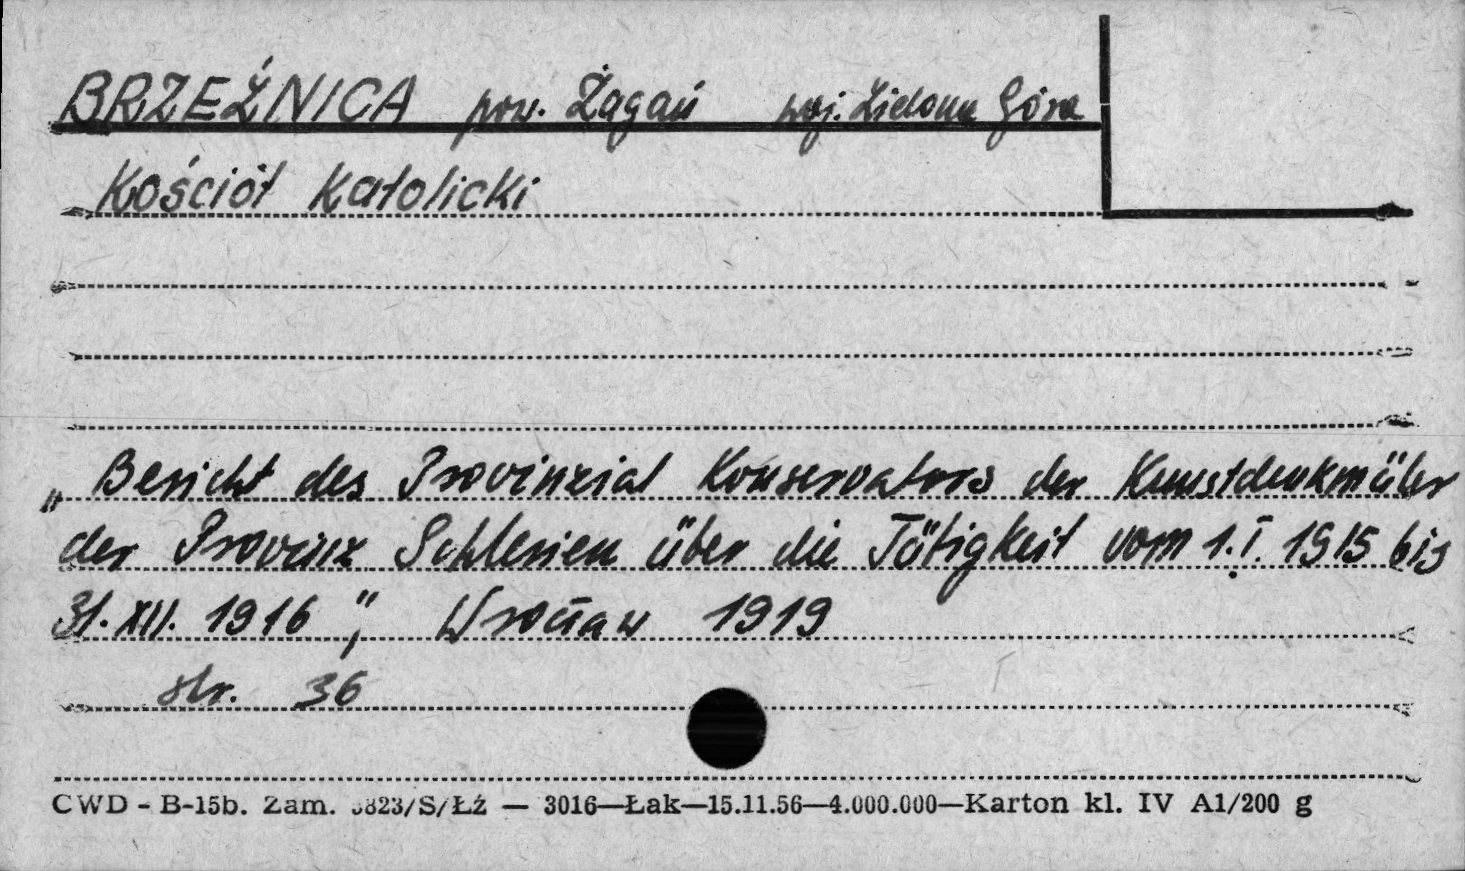 BRZEŹNICA pow. Żagań woj. Zielona Góra
Kościół Katolicki
„Bericht des Provinzial Konservators der Kunstdenkmäler
der Provinz Schlesien über die Tätigkeit vom 1.I. 1915 bis
31.XII. 1916", Wrocław 1919
str. 36
CWD - B-15b. Zam. 3823/S/Łź — 3016—Łak—15.11.56—4.000.000—Karton kl. IV A1/200 g